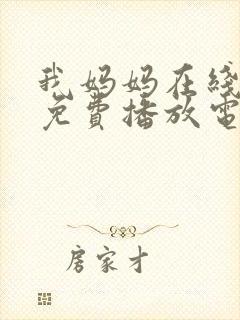 我妈妈在线
免费播放电
房家才